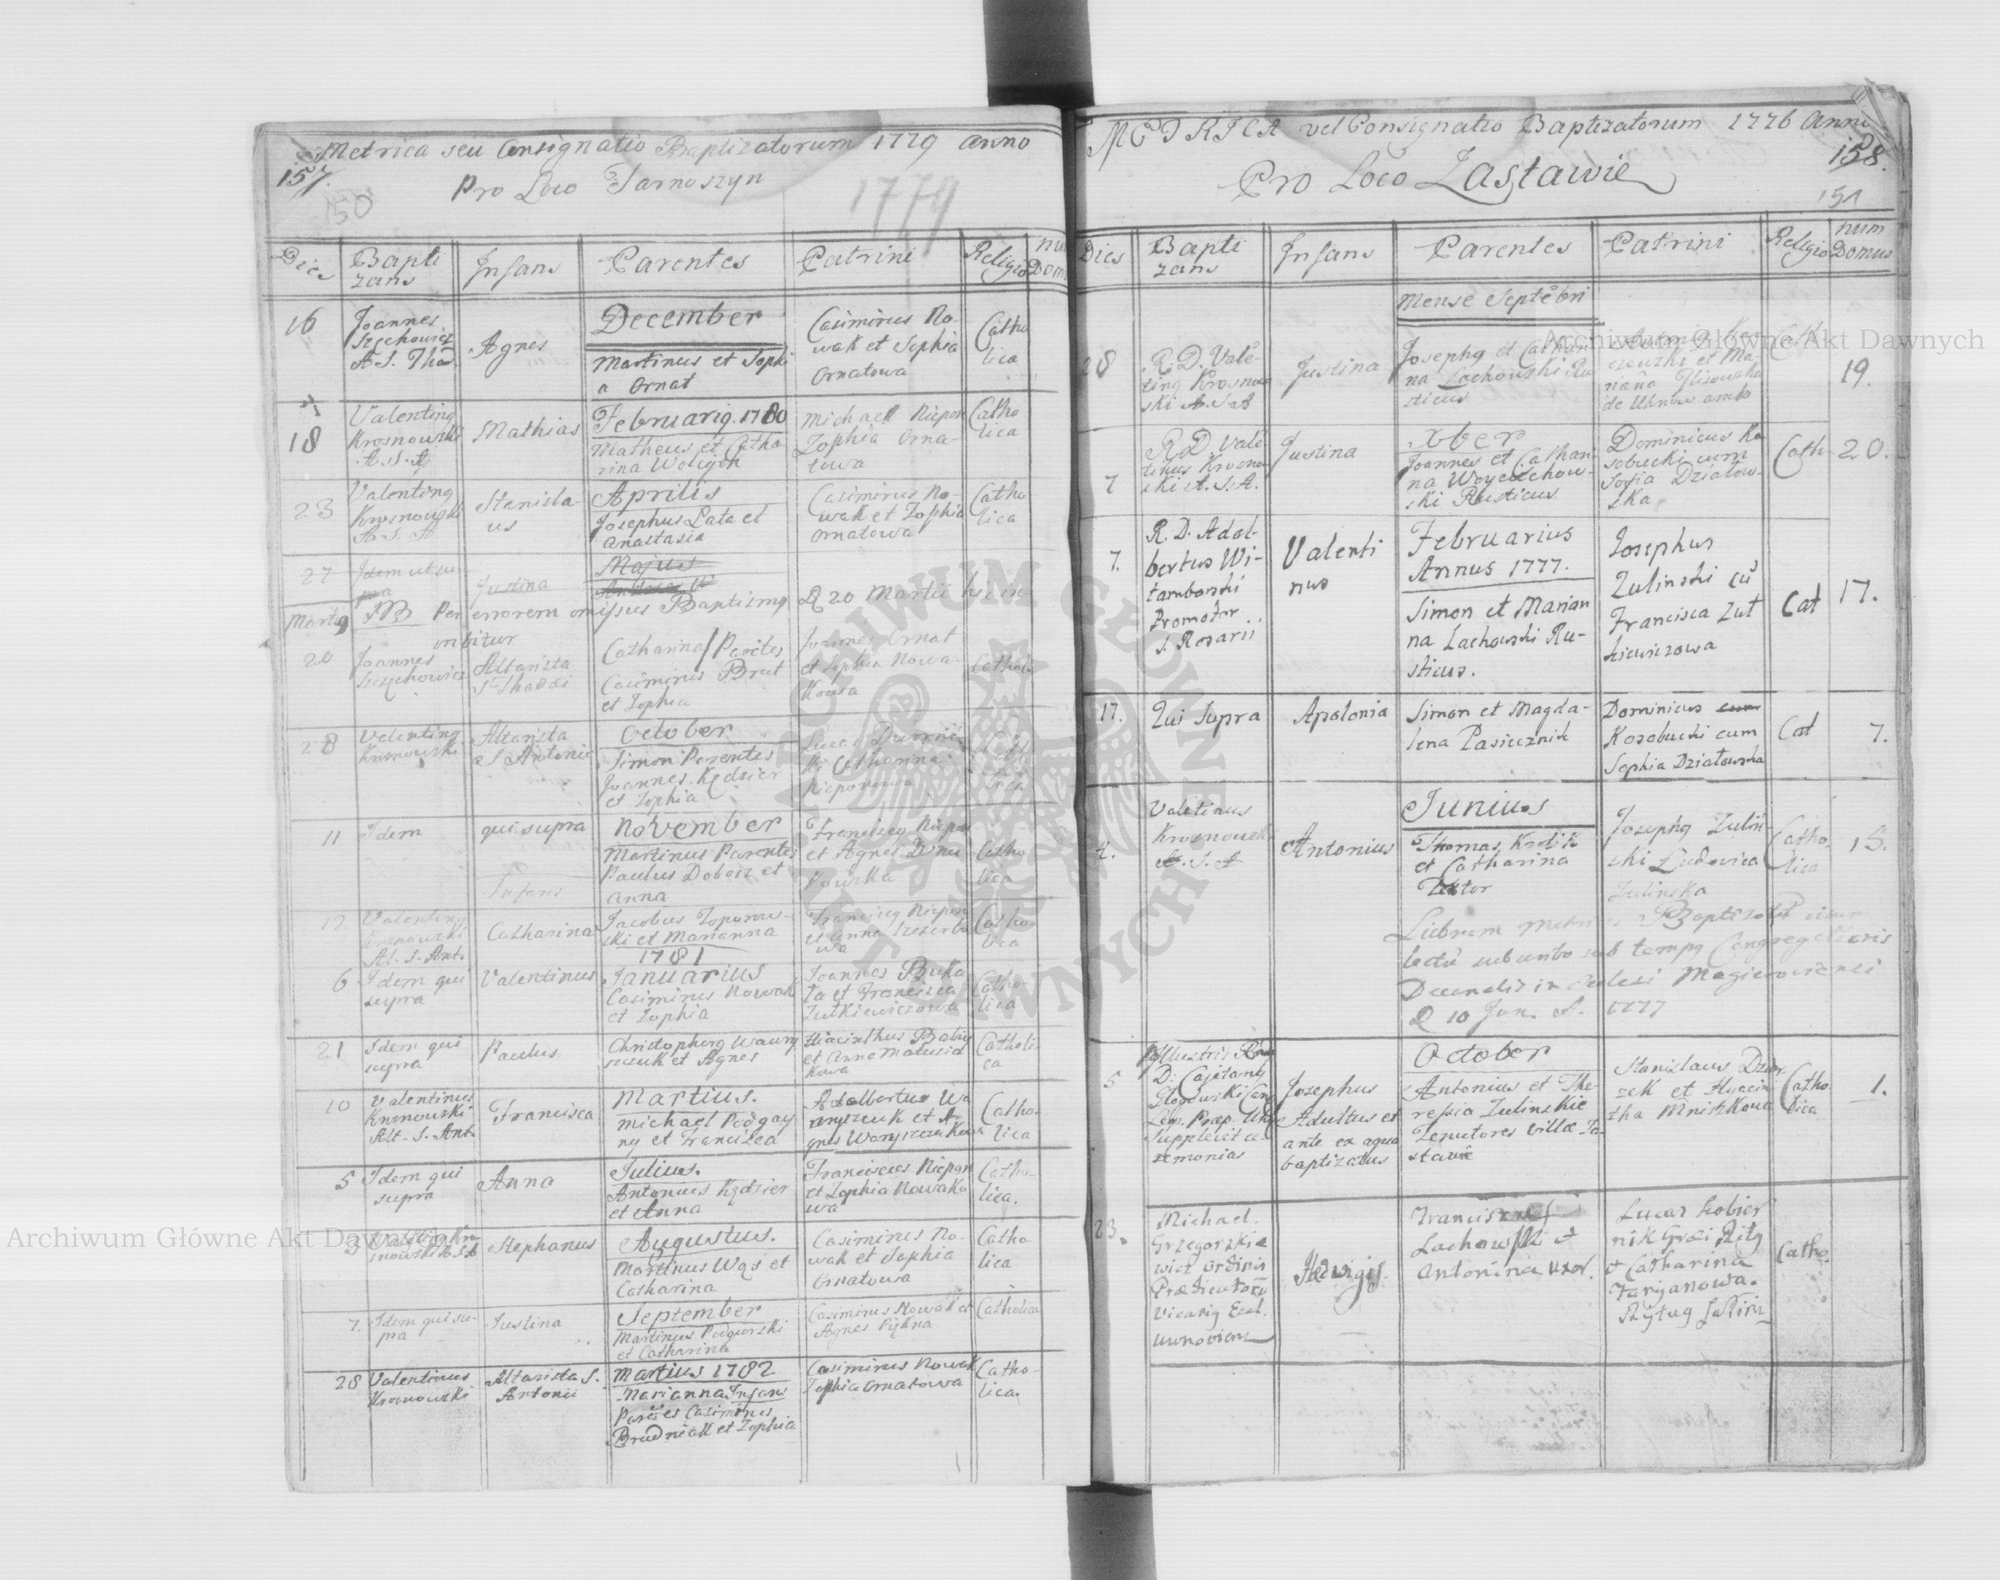 Metrica seu Consignatio Baptizatorum 1779 anno
157.
Pro Loco Tarnoszyn
150
1779
Dies
Bapti
zans
Infans
Parentes
Patrini
Religio
num
Dom
16
Joannes
Szchowicz
A. S. Thad.
Agnes
December
Martinus et Sophi
a Ornat
Casimirus No-
wak et Sophia
Ornatowa
Catho
lica
18
Valenting
Krosnowski
A. S. A.
Mathias
Februarig. 1780
Matheus et Catha
rina
Michael Niepon
Zophia Orna-
towa
Catho
lica
23
Valenting
Krosnowski
A. S. A
Stanisla-
us
Aprilis
Josephus Lata et
Anastasia
Casimirus No-
wak et Zophia
Ornatowa
Catho
lica
27
Idem ut su-
pra
Justina
Majus
Martig
NB Per errorem omissus Baptismg D 20 Martii hic in-
scribitur
20
Joannes
Szczchowicz
Altarista
S. Thaddei
Catharina / Paretes
Casimirus Brut
et Zophia
Joannes Ornat
et Sophia Nowa-
kowa
Catholi
28
Valenting
Krosnowski
Altarista
S Antonii
October
Simon Parentes
Joannes Kędzier
et Zophia
Catharina
Nieponowa
Catho
lica
11
Idem
qui supra
November
Martinus Parentes
Paulus Dobosz et
Anna
Infans
Franciscg Niepon
et Agnes
Catho
lica
12
Valenting
Krosnowski
Al. S. Ant.
Catharina
Jacobus Zoporow-
ski et Marianna
1781
Franciscg Niepon
et Anna
wa
Catho-
lica
6
Idem qui
supra
Valentinus
Januarius
Casimirus Nowak
et Zophia
Joannes Buka
ła et Francisca
Zutkiewiczowa
Catho
lica
21
Idem qui
supra
Paulus
Christophorg Wawry
szuk et Agnes
Hiacinthus Babij
et Anna Matusia
kowa
Catholi-
ca
10
Valentinus
Krosnowski
Alt. S. Ant.
Francisca
Martius.
Michael Podgay
ny et Francisca
Adalbertus Wa
wryszuk et A-
gnes Wawryszczukowa
Catho-
lica
5
Idem qui
supra
Anna
Julius.
Antonius Kędzier
et Anna
Franciscus Niepon
et Zophia Nowako
wa
Catho-
lica.
5
Valenting Kro
snowski A S A
Stephanus
Augustus.
Martinus Wąs et
Catharina
Casimirus No-
wak et Sophia
Ornatowa
Catho
lica
7.
Idem qui su-
pra
Justina
September
Martinus Podgurski
et Catharina
Casimirus Nowak et
Agnes Piękna
Catholica
28
Valentinus
Krosnowski
Altarista S.
Antonii
Martius 1782
Marianna Infans
Parētes Casimirus
Brudniak et Zophia
Casimirus Nowak
Zophia Ornatowa
Catho-
lica.
METRICA vel Consignatio Baptizatorum 1776 Anni
158.
Pro Loco Zastawie
151
Dies
Bapti
zans
Infans
Parentes
Patrini
Religio
num
Domus
Mense Septēbri
28
R. D. Valē-
ting Krosnow
ski A. S A
Justina
Josephg et Cathari
na Lachowski Ru
sticus
czewski et Ma-
rianna
de Uhnow ambo
Cath
19.
7
R. D Valē
tinus Krosno
ski A. S. A.
Justina
Xber
Joannes et Cathari
na Woyciechow-
ski Rusticus
Dominicus Ko
sobucki cum
Sofia Działow-
ska
Cath-
20.
7.
R. D. Adal-
bertus Wi-
tamborski
Promotor
S. Rosarii
Valenti
nus
Februarius
Annus 1777.
Simon et Marian
na Lachowski Ru-
sticus.
Josephus
Zulinski cū
Francisca Zut
kiewiczowa
Cat
17.
17.
Qui Supra
Apolonia
Simon et Magda-
lena Pasiecznik
Dominicus cum
Kosobucki cum
Sophia Działowska
Cat
7.
4.
Valētinus
Krosnowski
A. S. A
Antonius
Junius
Thomas Kordik
et Catharina
Textor
Josephg Zuliń-
ski Ludovica
Zulinska
Catho-
lica
15.
Librum Metrices Baptizatorum visum
lectū sub tempg Congregationis
Decanalis in Ecclesi Magierowiensi
D 10 Jun. A. 1777
5
Illustris
D. Cajetang
Głogowski Can
Leop. Præp. Uhn
Supplevit ce-
remonias
Josephus
Adultus et
ante ex aqua
baptizatus
October
Antonius et The-
resia Zulinskie
Tenutores Villæ Za-
stawie
Stanislaus Dzier
zek et Hyacin-
tha Mniszkowa
Catho-
lica
1.
23.
Michael
Grzegorzkie
wicz Ordinis
Prædicatorū
Vicarig Eccl.
Uhnoviens
Hedwigis.
Franciscus
Lachowski et
Antonina Uxor.
Lucas Kobier
nik Græci Ritg
et Catharina
Farganowa.
Ritus Latini
Catho.
Archiwum Główne Akt Dawnych
Archiwum Główne Akt Dawnych
ARCHIWUM GŁÓWNE AKT DAWNYCH